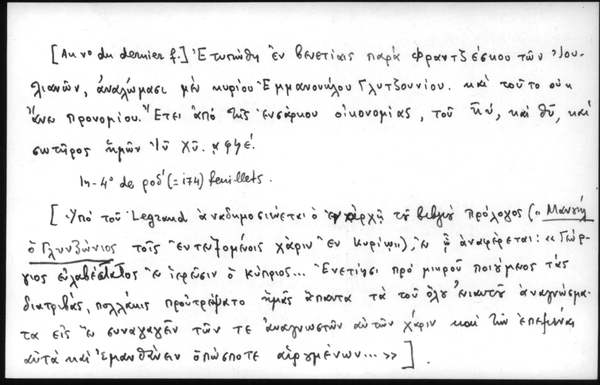 [Au vº du dernier f.] Ἐτυπώθη ἐν Βενετίαις παρὰ Φραντζέσκου τῶν Ἰου-
λιανῶν, ἀναλώμασι μὲν κυρίου Ἐμμανουήλου Γλυτζουνίου. καὶ τοῦτο οὐκ
ἄνευ προνομίου. Ἔτει ἀπὸ τῆς ἐνσάρκου οἰκονομίας, τοῦ κυ, καὶ θυ, καὶ
σωτῆρος ἡμῶν ἰυ χυ. αφϟέ.
In-4º de ροδ' (=174) feuillets.
[Ὑπὸ τοῦ Legrand ἀναδημοσιεύεται ὁ ἐν ἀρχῇ τοῦ βιβλίου πρόλογος (" Μανουὴλ
ὁ Γλυνζώνιος τοῖς ἐντευξομένοις χάριν ἐν Κυρίῳ"), ἐν ᾧ ἀναφέρεται: «Γεώρ-
γιος εὐλαβέστατος ἐν ἱερεῦσιν ὁ κύπριος... Ἐνετίῃσι πρὸ μικροῦ ποιούμενος τὰς
διατριβὰς, πολλάκις προὐτρέψατο ἡμᾶς ἅπαντα τὰ τοῦ ὅλου ἐνιαυτοῦ ἀναγνώσμα-
τα εἰς ἓν συναγαγεῖν τῶν τε ἀναγνωστῶν αὐτῶν χάριν καὶ τῶν
αὐτὰ καὶ ἐκμανθάνειν ὁπώσποτε αἱρουμένων...»].